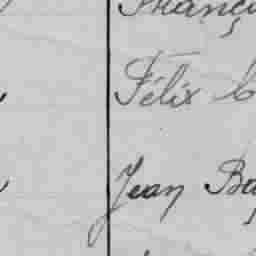 Franç
Félix C
Jean Bap